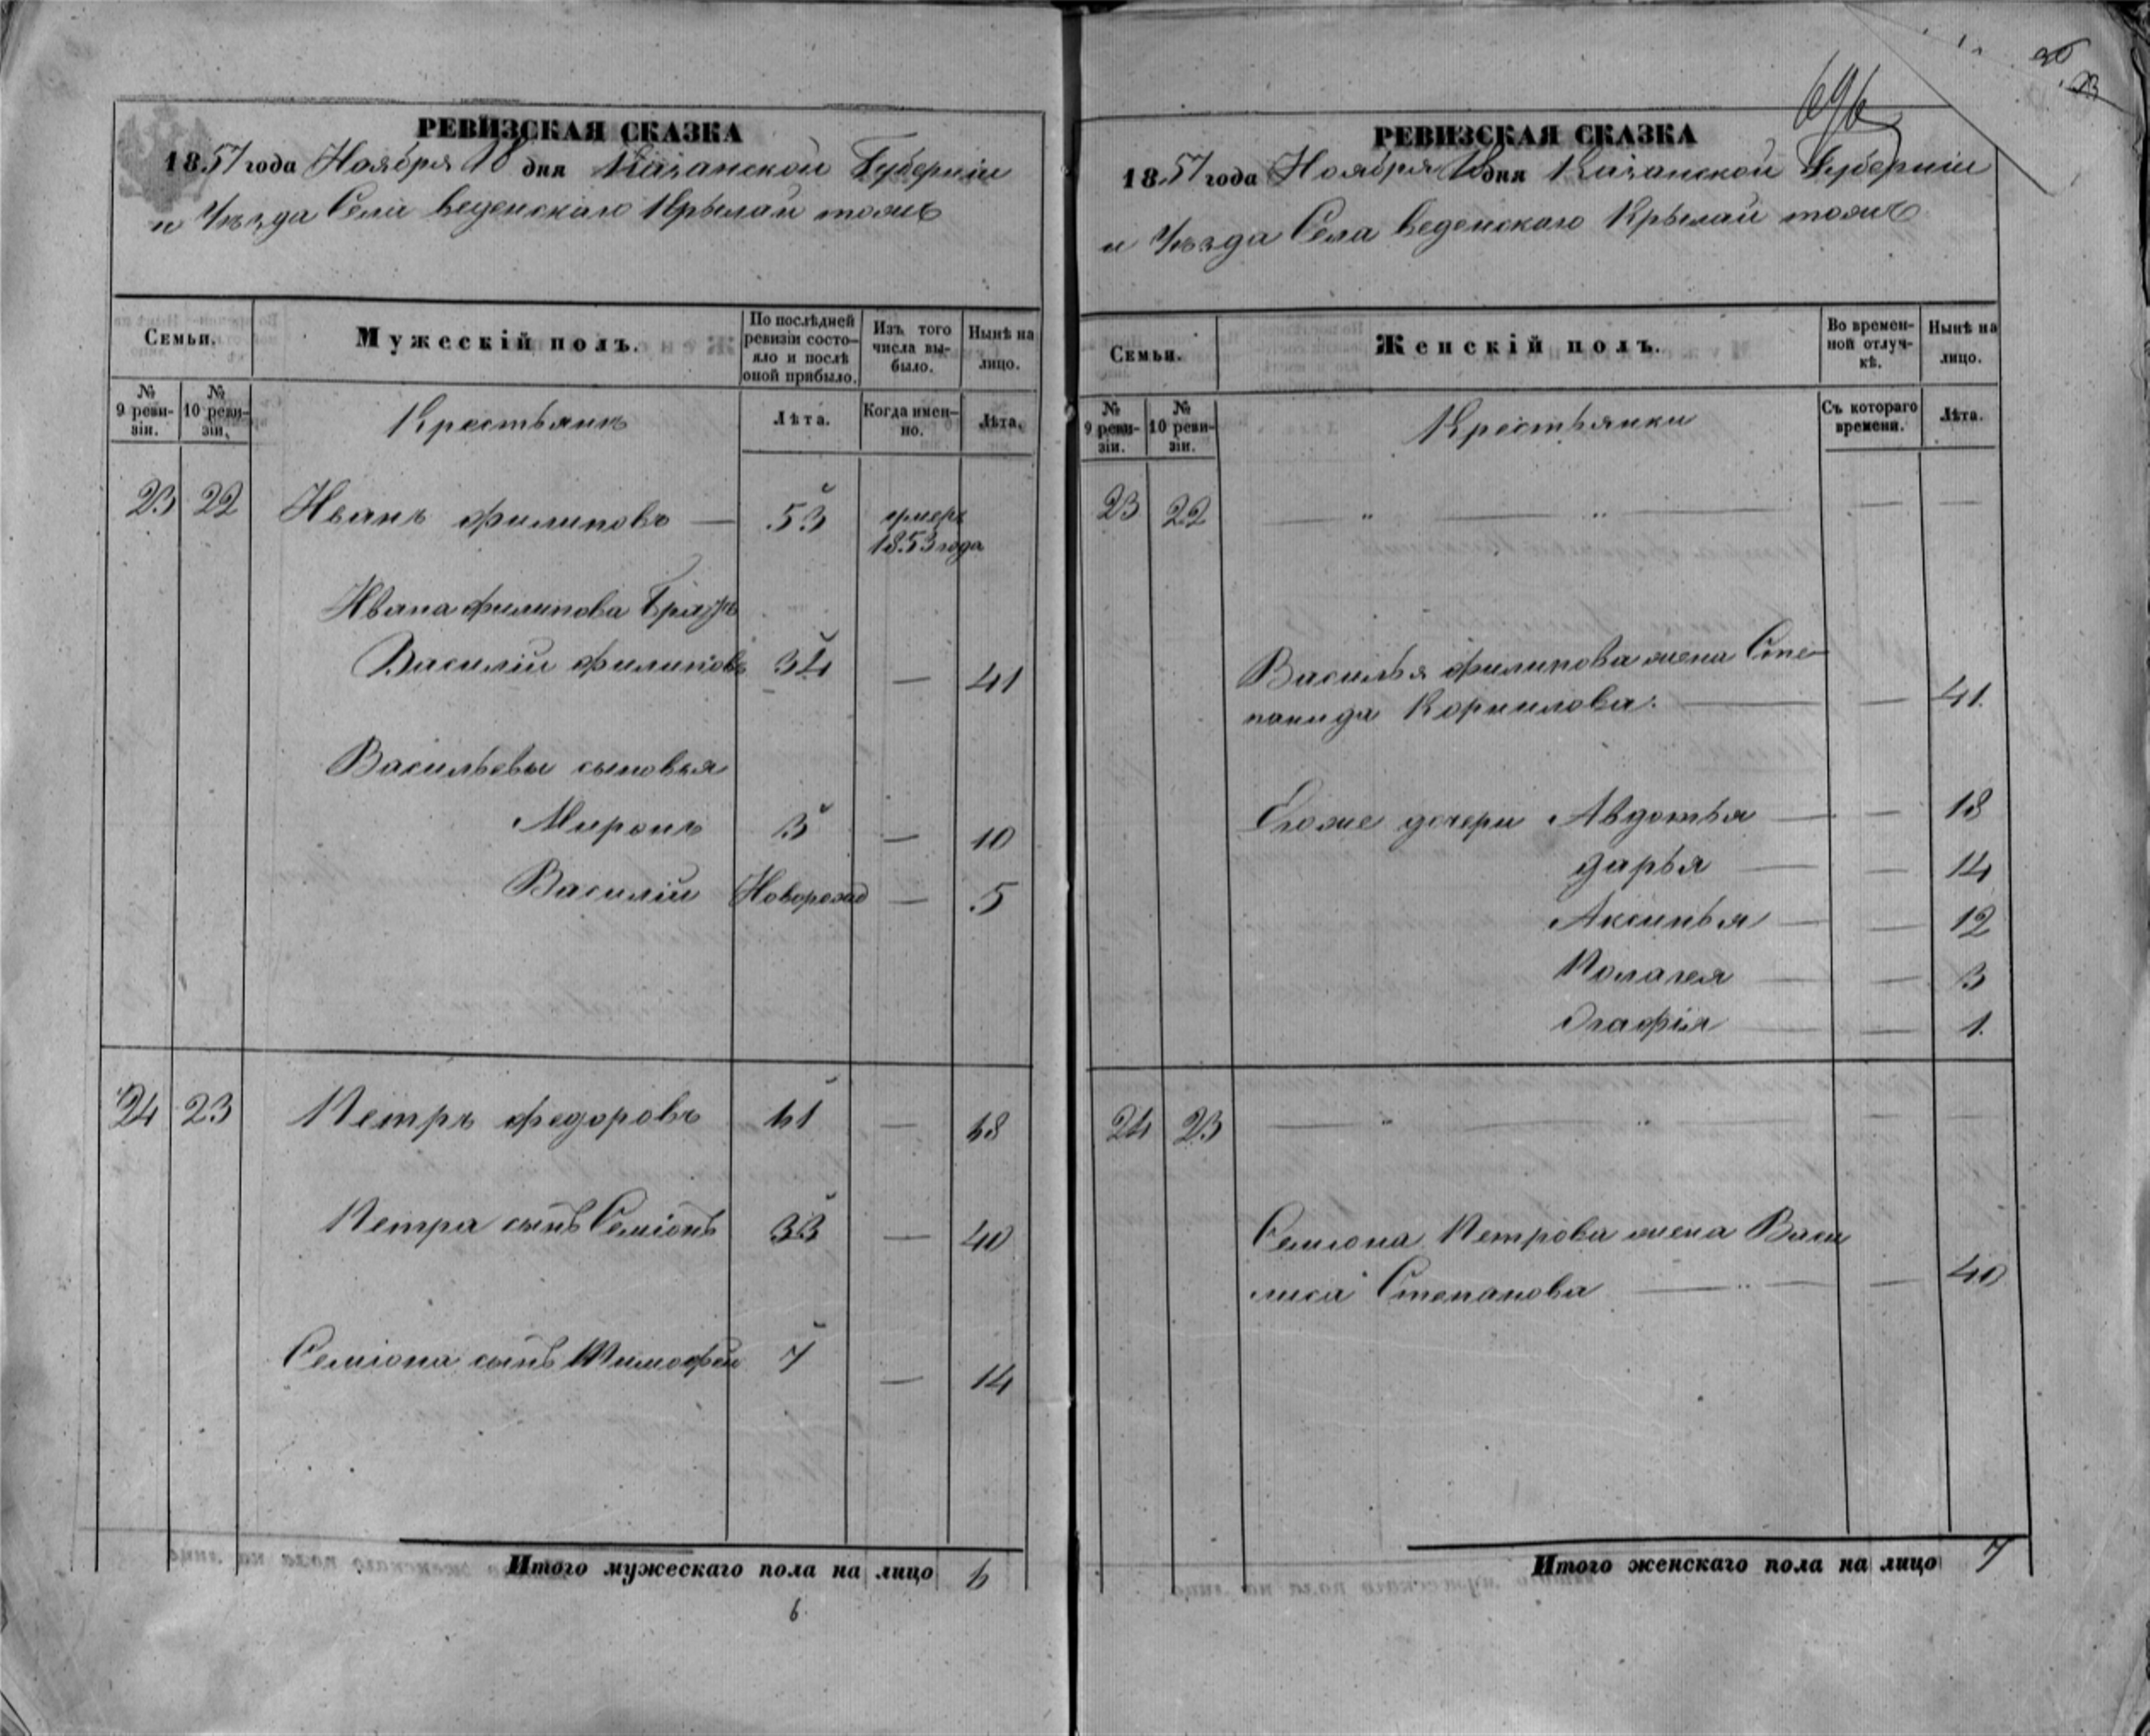 РЕВИЗСКАЯ СКАЗКА
1857 года Ноября 18 дня Казанской Губерніи
и Уѣзда Села Веденскаго Крылай тожъ
Семьи.
Мужескій полъ.
По послѣдней ревизіи состояло и послѣ оной прибыло.
Изъ того числа выбыло.
Нынѣ на лицо.
№ 9 ревизіи.
№ 10 ревизіи.
Крестьянъ
Лѣта.
Когда именно.
Лѣта.
23 22 Иванъ Филиповъ — 53 умеръ
1853 года
Ивана Филипова Братъ
Василій Филиповъ 34 — 41
Васильевы сыновья
Миронъ 3 — 10
Василій Новорожд — 5
24 23 Петръ Федоровъ 61 — 68
Петра сынъ Семіонъ 33 — 40
Семіона сынъ Тимофей 7 — 14
Итого мужескаго пола на лицо 6
6
696
РЕВИЗСКАЯ СКАЗКА
1857 года Ноября 18 дня Казанской Губерніи
и Уѣзда Села Веденскаго Крылай тожъ
Семьи.
Женскій полъ.
Во временной отлучкѣ.
Нынѣ на лицо.
№ 9 ревизіи.
№ 10 ревизіи.
Крестьянки
Съ котораго времени.
Лѣта.
23 22 — " — " — — —
Василья Филипова жена Сте-
панида Корнилова — — 41
Егоже дочери Авдотья — — 18
Дарья — — 14
Аксинья — — 12
Полагея — — 3
Огафія — — 1
24 23 — " — " — — —
Семіона Петрова жена Васи
лиса Степанова — " — — 40
Итого женскаго пола на лицо 7